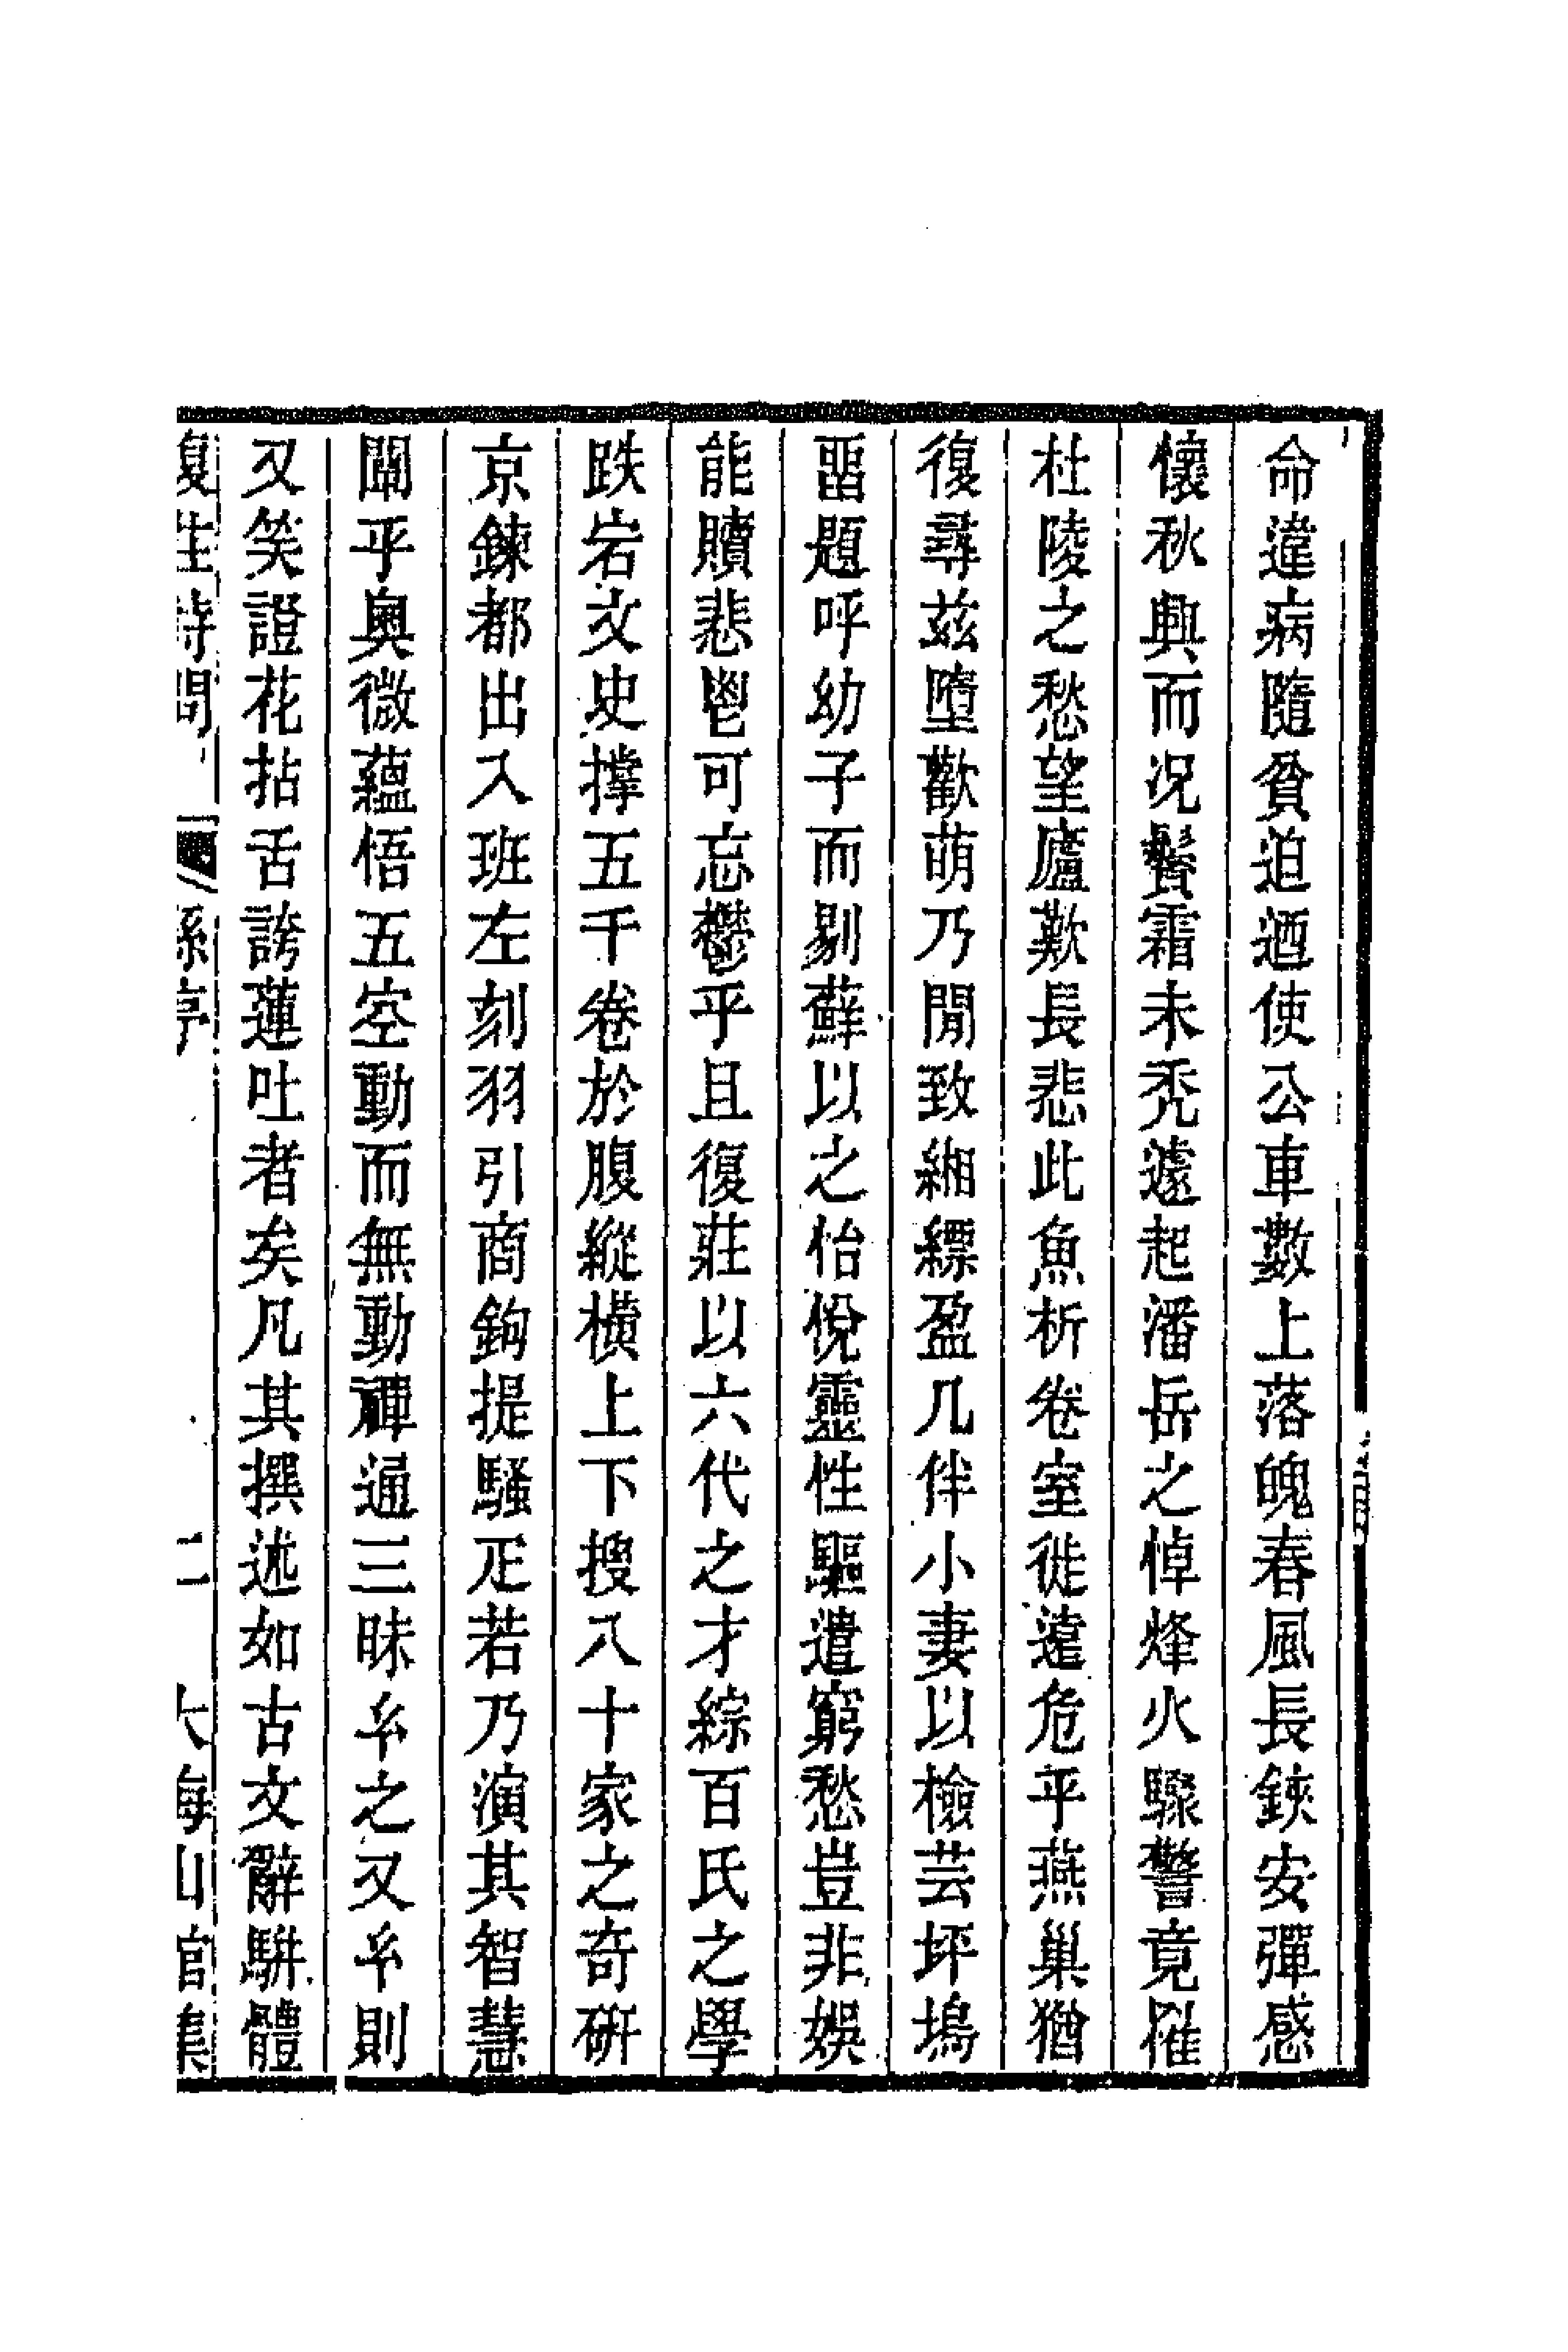 命違病隨貧迫迺使公車數上落魄春風長鋏安彈感
懷秋興而况鬢霜未秃遽起潘岳之悼烽火驟警竟罹
杜陵之愁望廬歎長悲此魚析卷室徙遠危乎燕巢猶
復尋茲墮歡萌乃閒致緗縹盈几伴小妻以檢芸坪塢
畱題呼幼子而剔蘚以之怡悅靈性驅遣窮愁豈非娛
能贖悲鬯可忘鬱乎且復莊以六代之才綜百氏之學
跌宕文史撑五千卷於腹縱橫上下搜八十家之奇硏
京鍊都出入班左刻羽引商鉤提騷疋若乃演其智慧
闡乎奧微蘊悟五空動而無動禪通三昧糸之又糸則
又笑證花拈舌誇蓮吐者矣凡其撰述如古文辭駢體
復莊詩問 孫序 二 大梅山館集